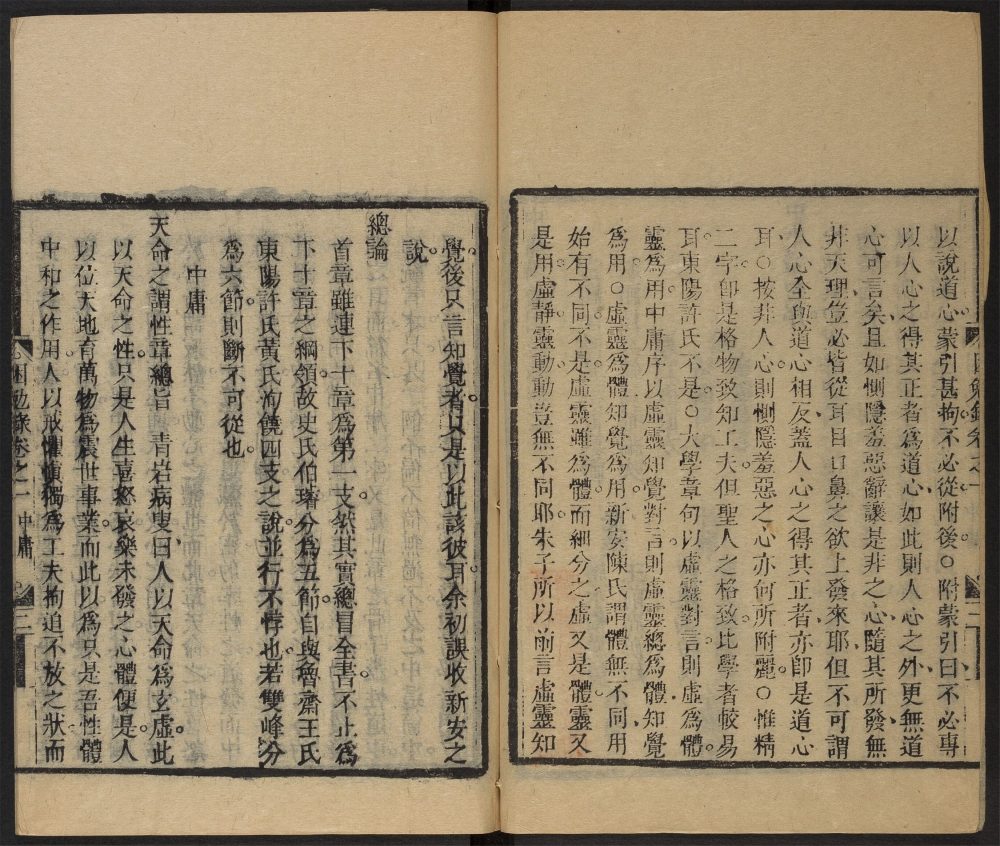 以說道心蒙引甚拘不必從附後○附蒙引曰不必專
以人心之得其正者爲道心如此則人心之外更無道
心可言矣且如惻隱羞惡辭讓是非之心隨其所發無
非天理豈必皆從耳目口鼻之欲上發來耶但不可謂
人心全與道心相反蓋人心之得其正者亦卽是道心
耳○按非人心則惻隱羞惡之心亦何所附麗○惟精
二字卽是格物致知工夫但聖人之格致比學者較易
耳東陽許氏不是○大學章句以虛靈對言則虛爲體
靈爲用中庸序以虛靈知覺對言則虛靈總爲體知覺
爲用○虛靈爲體知覺爲用新安陳氏謂體無不同用
始有不同不是虛靈雖爲體而細分之虛又是體靈又
是用虛靜靈動動豈無不同耶朱子所以前言虛靈知
覺後只言知覺者只是以此該彼耳余初誤收新安之
說
總論
首章雖連下十章爲第一支然其實總冒全書不止爲
下十章之綱領故史氏伯璿分爲五節自與魯齋王氏
東陽許氏黃氏洵饒四支之說並行不悖也若雙峰分
爲六節則斷不可從也
中庸
天命之謂性章總旨 青岩病叟曰人以天命爲玄虛此
以天命之性只是人生喜怒哀樂未發之心體便是人
以位天地育萬物爲震世事業而此以爲只是吾性體
中和之作用人以戒懼愼獨爲工夫拘迫不放之狀而
困勉錄卷之一 中庸 二